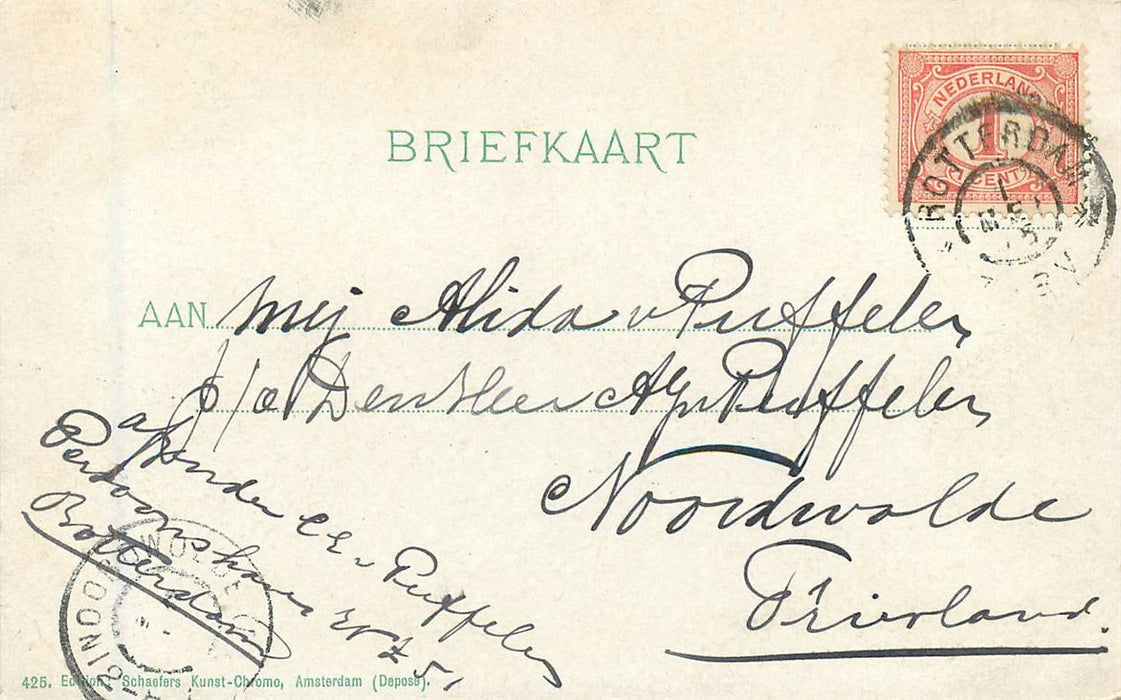 BRIEFKAART
NEDERLAND
1
CENT
ROTTERDAM
AAN Mej Alida v Puffelen
p/a Den Heer A v Puffelen
Noordwolde
Friesland.
afzender C E v Puffelen
Persoonshaven
Rotterdam
NOORDWOLDE
425. Edition: Schaefers Kunst-Chromo, Amsterdam (Deposé).